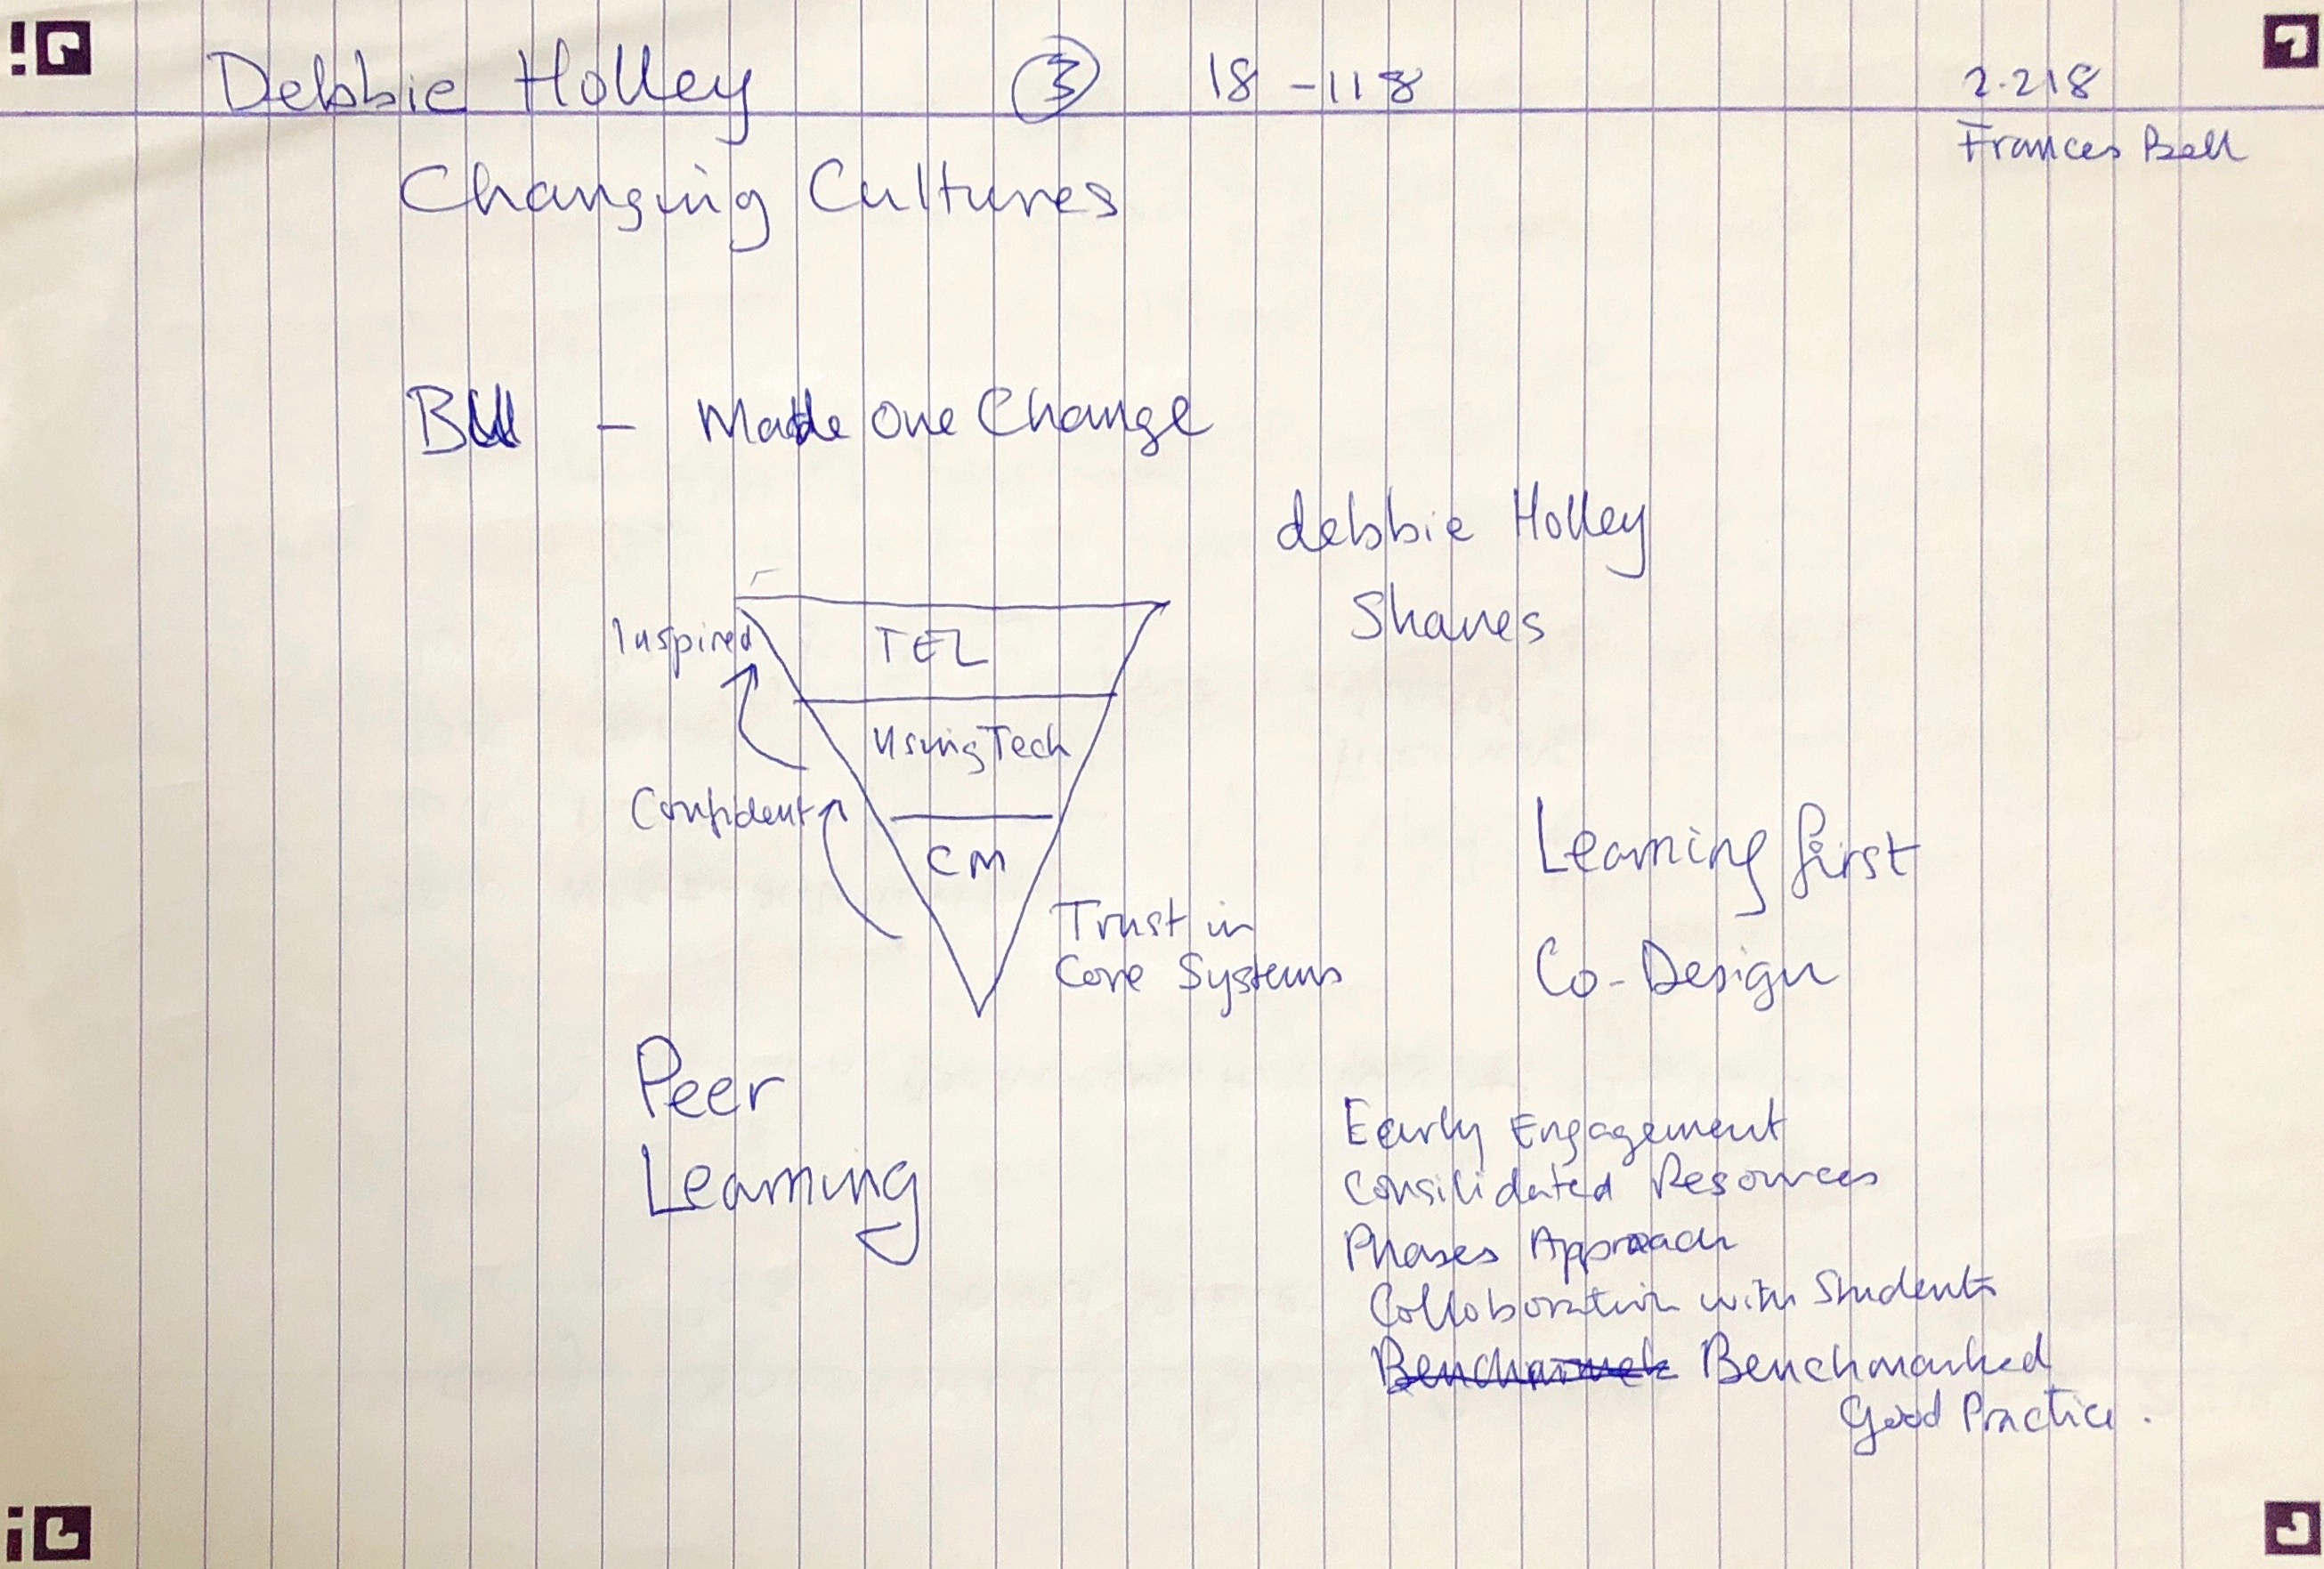 Debbie Holley ③ 18-118 2.218
Frances Bell
Changing Cultures
BU - Made One Change
debbie Holley
Shares
Inspired TEL
Using Tech
Confident
CM
Learning first
Trust in
Core Systems
Co-Design
Peer
Learning
Early Engagement
Consilidated Resources
Phases Approach
Collaboration with Students
Benchmarked
Good Practice.